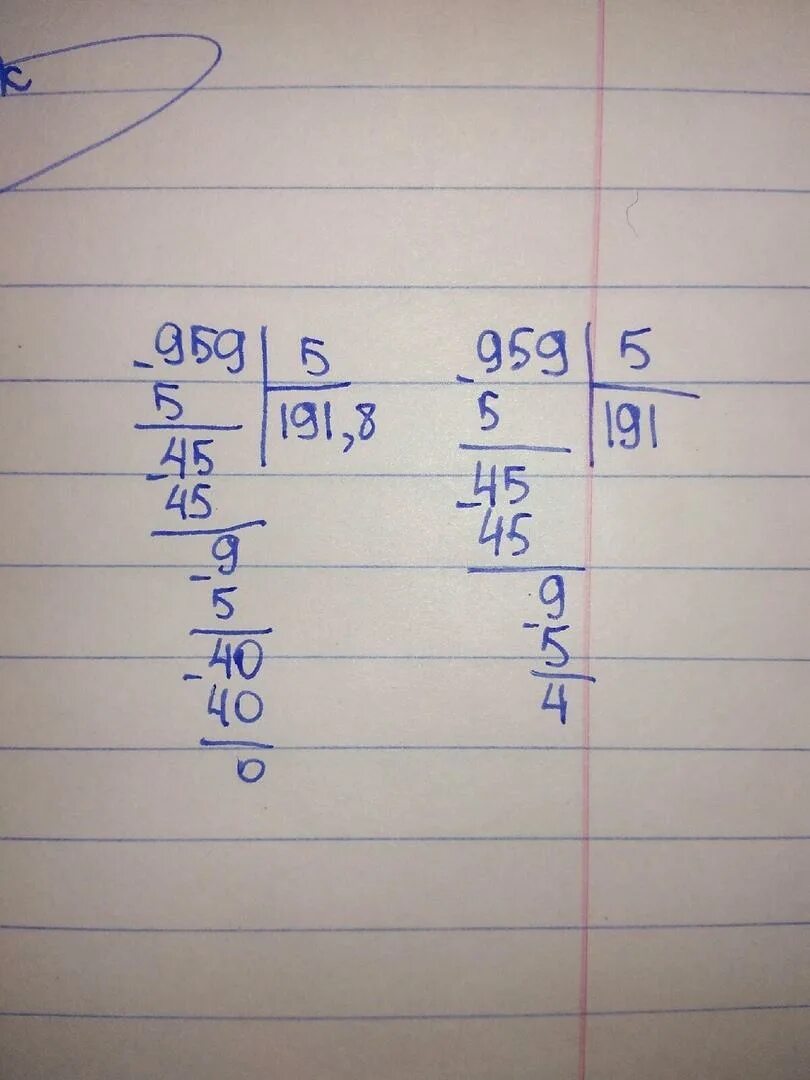 к
-959 | 5
5 | 191,8
-45
45
-9
5
-40
40
0
-959 | 5
5 | 191
-45
45
-9
5
4